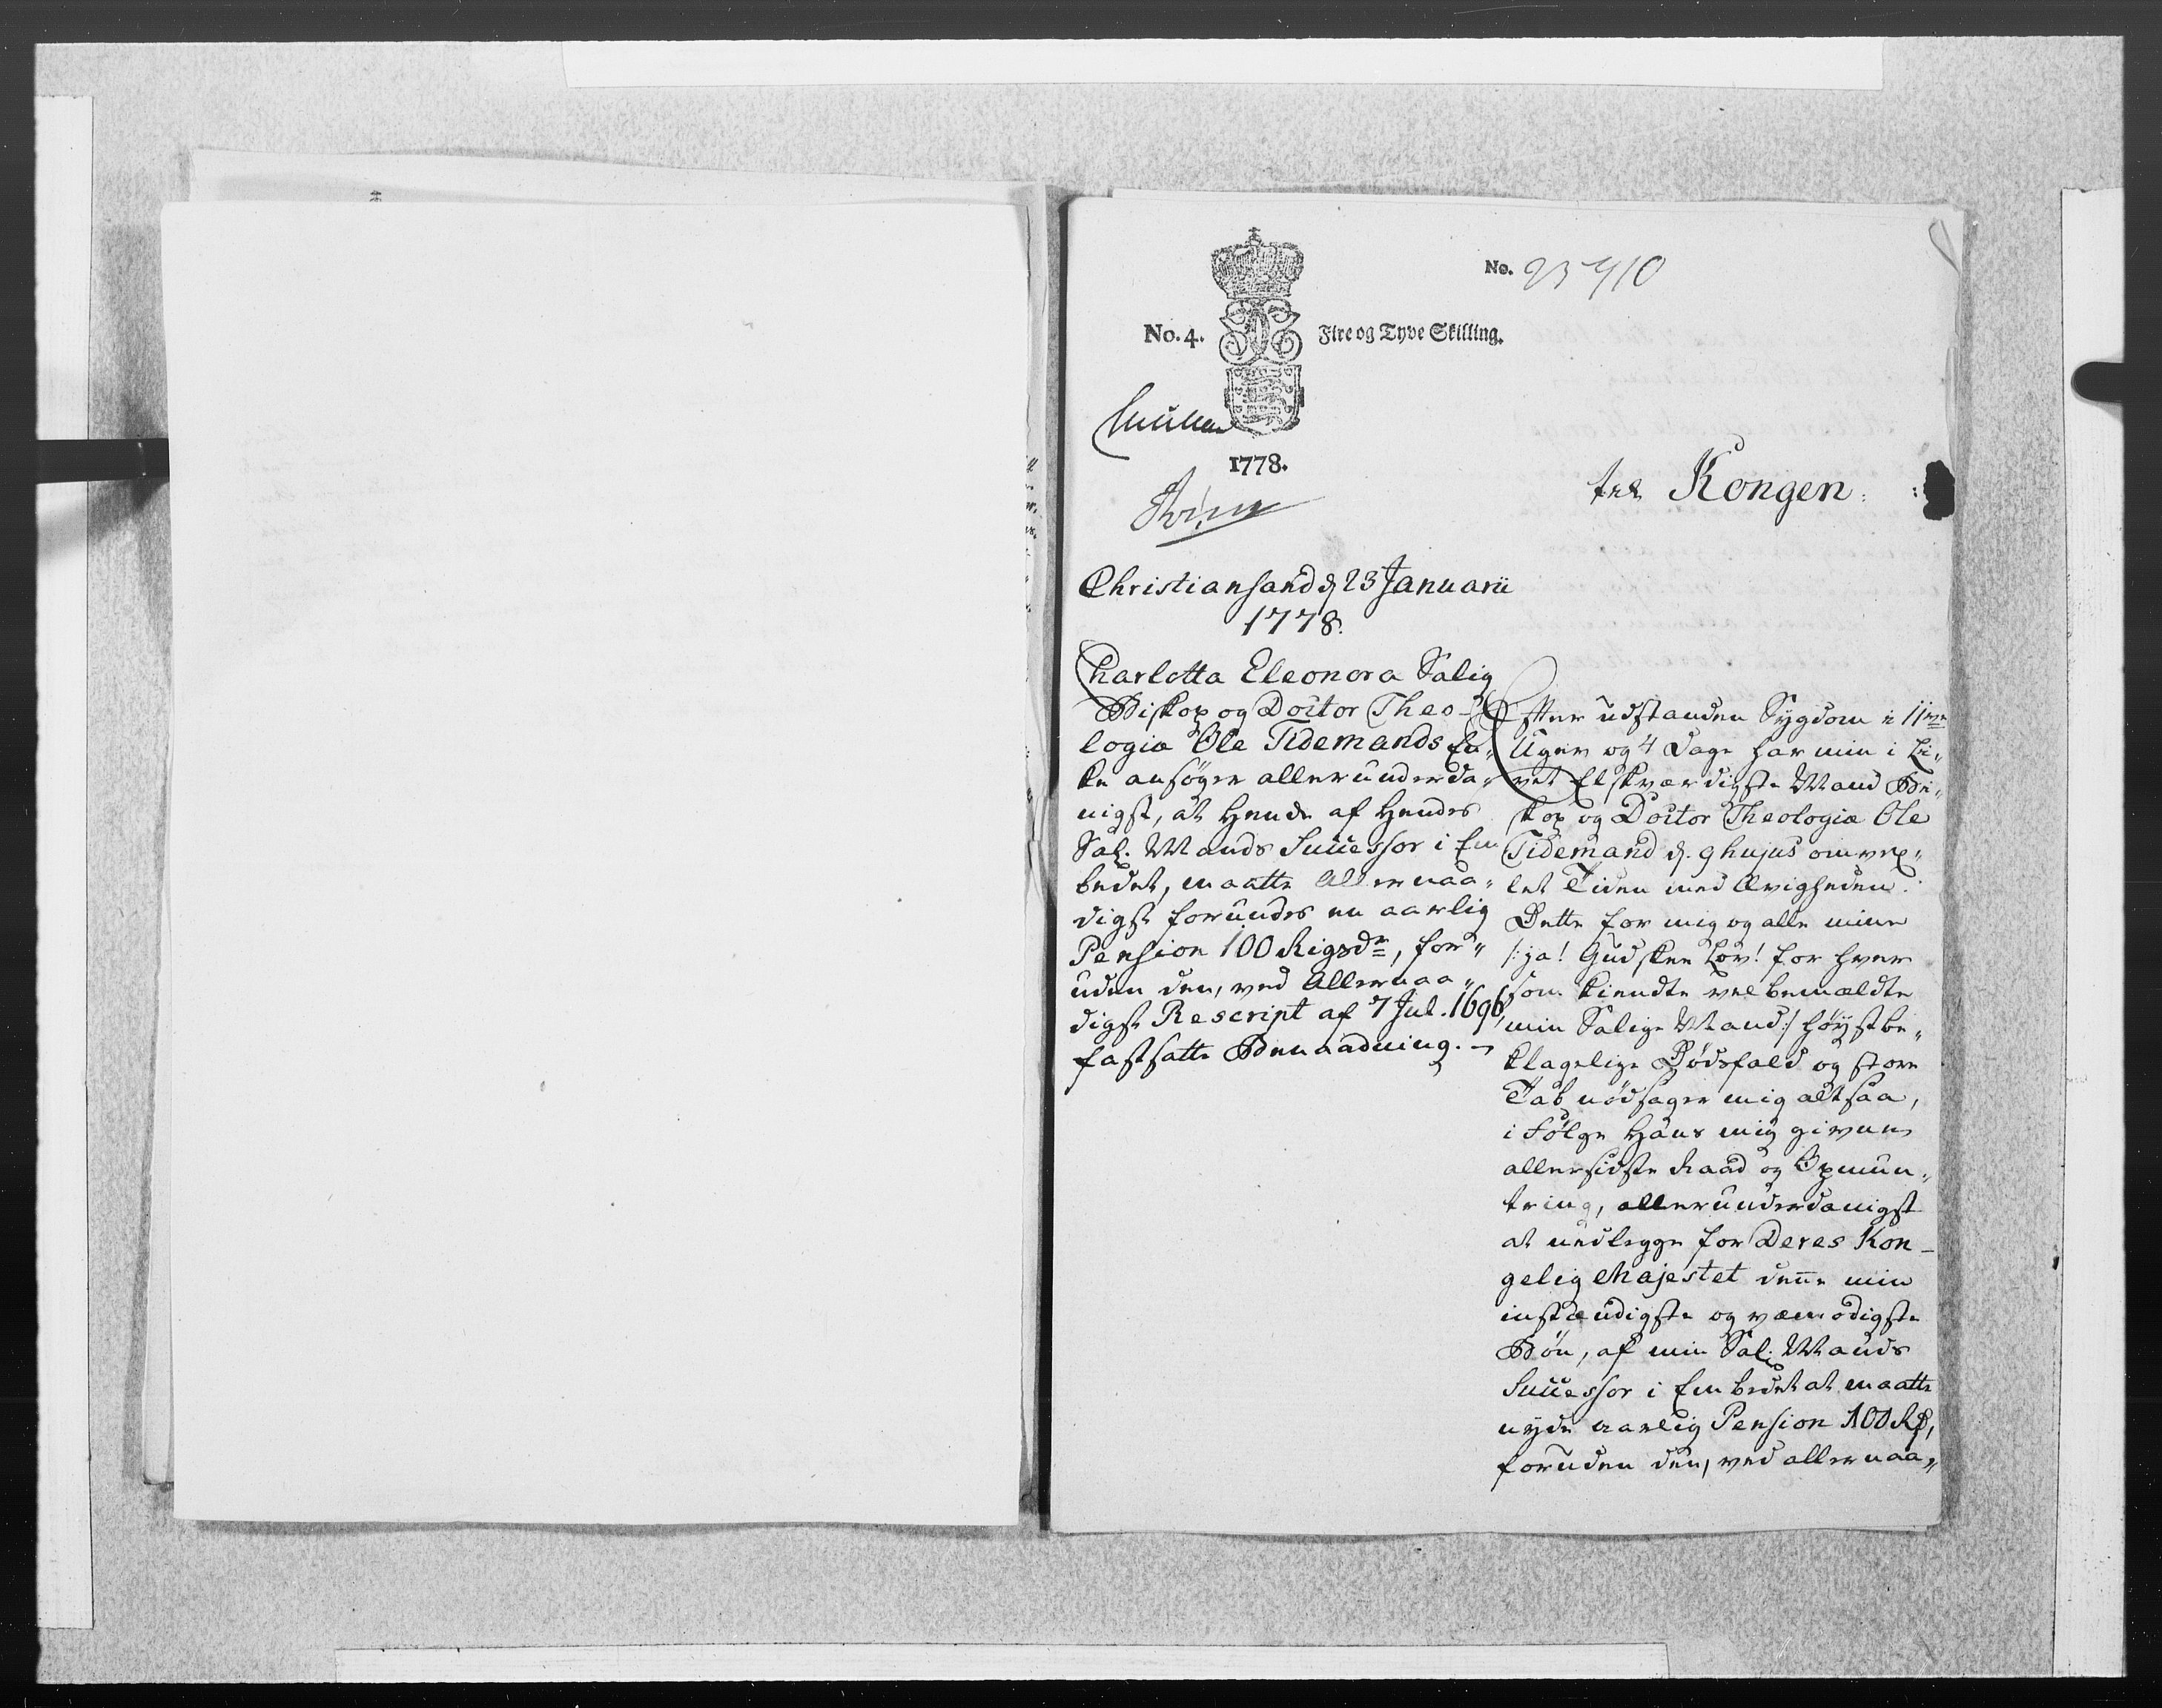 No. 23410
No. 4. Fire og Tyve Skilling.
1778.
til Kongen
Christiansand d. 23 Januarii
1778.
Charlotta Eleonora Salig
Biskop og Doctor Theo-
logiæ Ole Tidemands En-
ke ansøger allerunderda-
nigst, at Hende af Hendes
Sal. Mands Successor i Em
bedet, maatte Allernaa-
digst forundes en aarlig
Pension 100 Rigsdr, for-
uden den, ved Allernaa-
digst Rescript af 7 Jul. 1696,
fastsatte Benaadning.
Efter udstanden Sygdom i 11ve
Uger og 4 Dage har min i Li-
vet Elskværdigste Mand Bi-
skop og Doctor Theologiæ Ole
Tidemand d. 9 hujus omvex-
let Tiden med Ævigheden.
Dette for mig og alle mine
/: ja! Gud skee Lov! for hver
som kiendte velbemældte
min Salige Mand :/ høystbe-
klagelige Dødsfald og store
Tab nødsager mig altsaa,
i Følge Hans mig givne
allersidste Raad og Opmun-
tring, allerunderdanigst
at nedlegge for Deres Kon-
gelig Majestet denne min
instændigste og væmodigste
Bøn, af min Sal. Mands
Successor i Embedet at maatte
nyde aarlig Pension 100 Rd,
foruden den, ved allernaa-